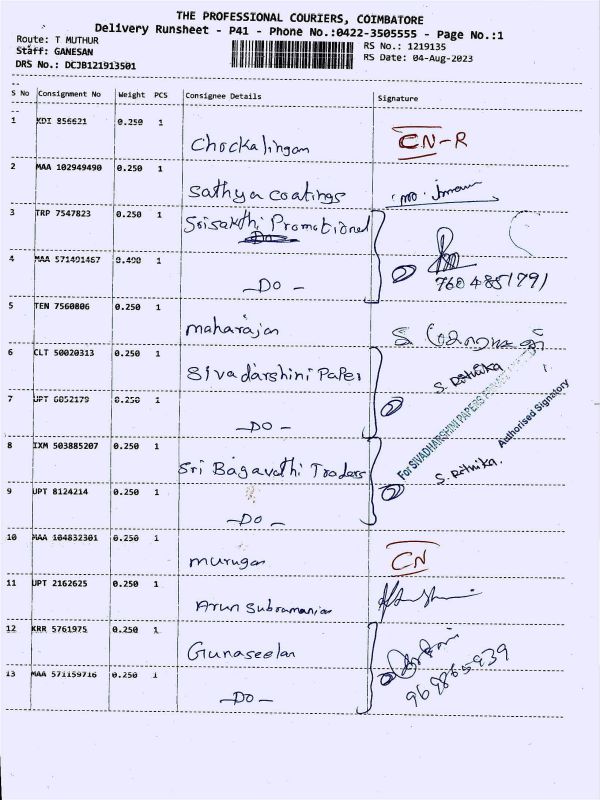 THE PROFESSIONAL COURIERS, COIMBATORE
Delivery Runsheet - P41 - Phone No.:0422-3505555 - Page No.:1
Route: T MUTHUR
RS No.: 1219135
Staff: GANESAN
RS Date: 04-Aug-2023
DRS No.: DCJB121913501
S No Consignment No Weight PCS Consignee Details Signature
1 KDI 856621 0.250 1
Chockalingam CN-R
2 MAA 102949490 0.250 1
Sathya coatings
3 TRP 7547823 0.250 1
Srisakthi Promotional
Do
4 MAA 571491467 0.400 1
-Do- 2 7604851791
5 TEN 7560806 0.250 1
maharajan S.
6 CLT 50020313 0.250 1
Sivadarshini Paper S. Rithika
7 UPT 6052179 0.250 1
-Do- 2
For SIVADHARSHINI PAPERS
Authorised Signatory
8 IXM 503885207 0.250 1
Sri Bagavathi Traders
S. Rithika.
9 UPT 8124214 0.250 1
-Do- 2
10 MAA 104832301 0.250 1
murugan CN
11 UPT 2162625 0.250 1
Arun Subramanian
12 KRR 5761975 0.250 1
Gunaseelan
13 MAA 571159716 0.250 1
-Do- 2